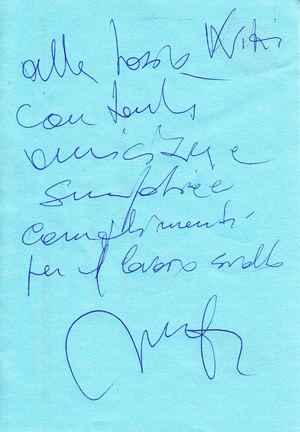 alla
con tanta
amicizia e
simpatia e
complimenti
per il lavoro svolto